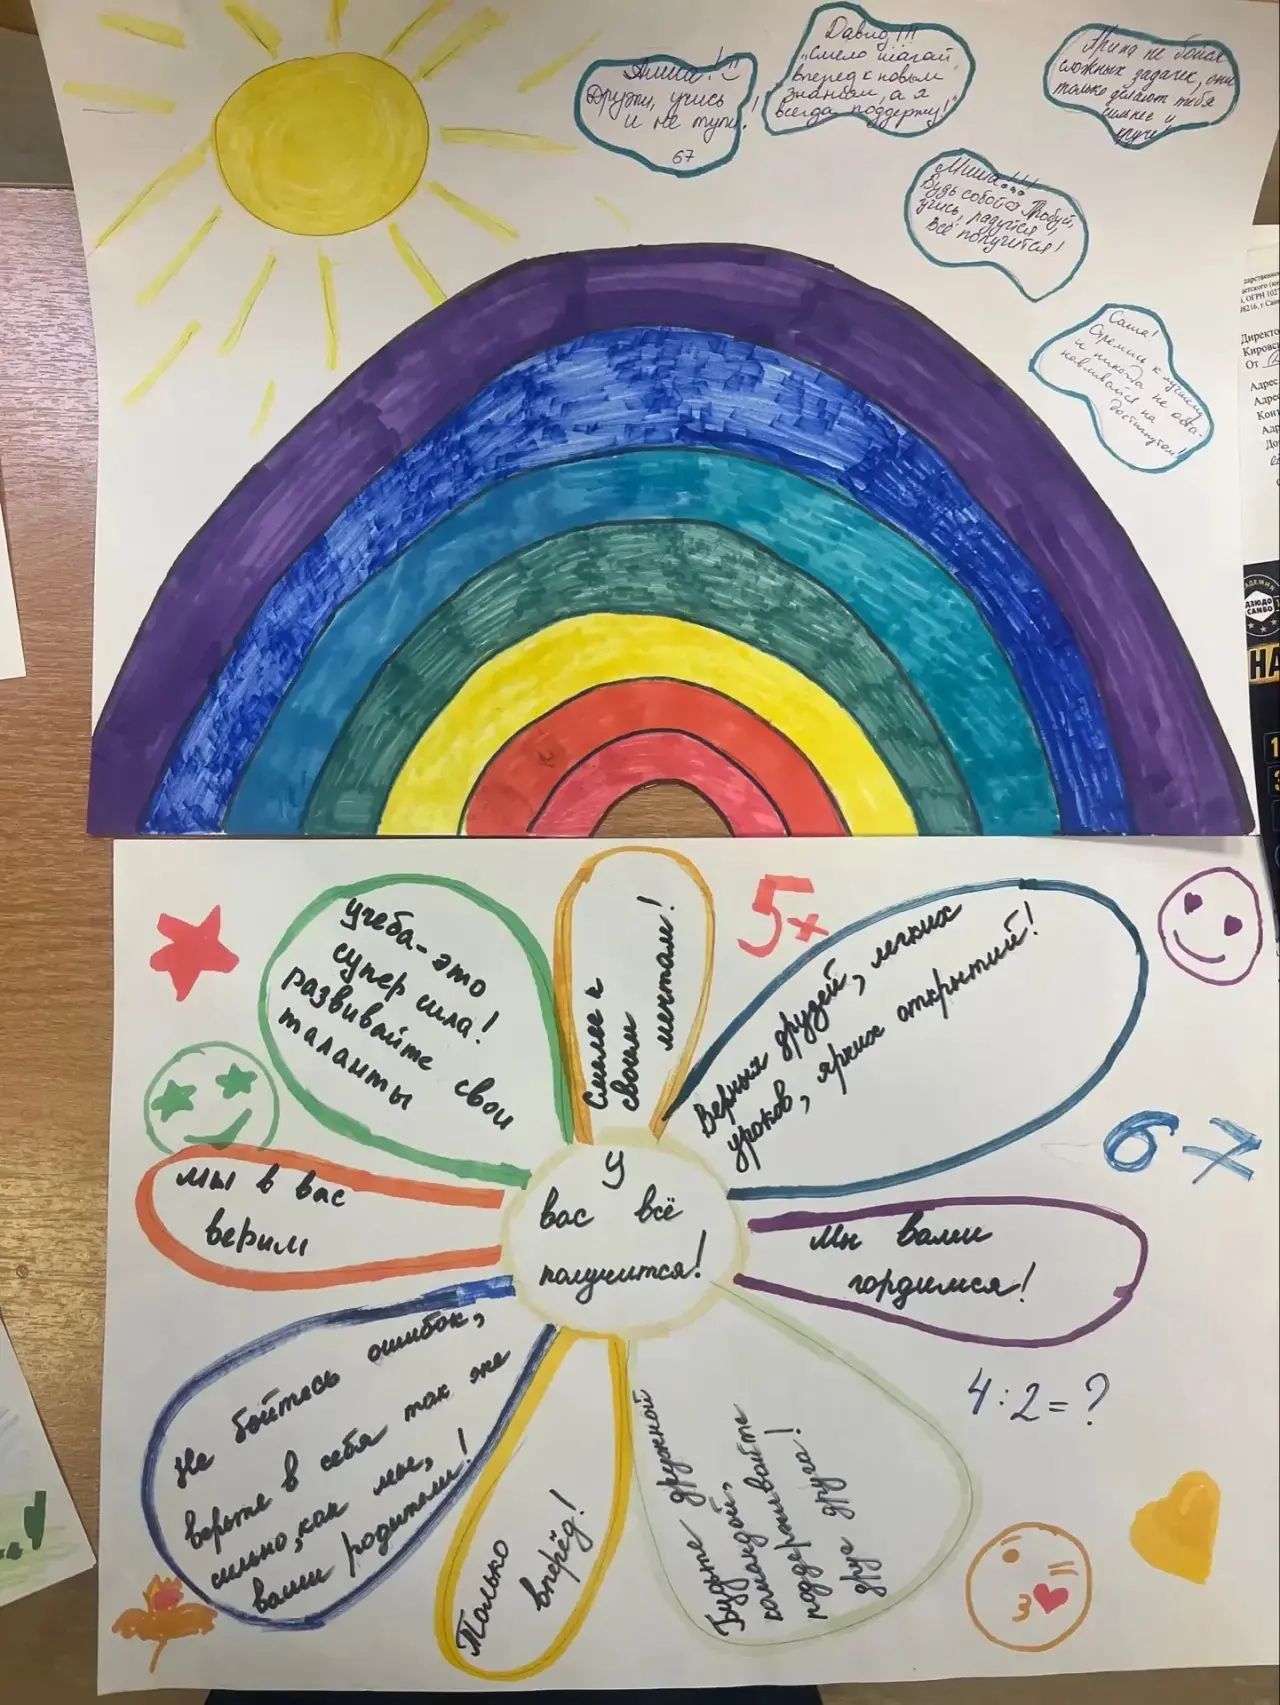 Алиса!
Дружи, учись
и не тупи!
67
Давид!!!
"Смело шагай
вперед к новым
знаниям, а я
всегда поддержу!"
Арина не бойся
сложных задачек, они
только делают тебя
сильнее и
круче!
Миша!!!
Будь собой Пробуй,
учись, радуйся,
всё получится!
Саша!
Стремись к лучшему
и никогда не оста-
навливайся на
достигнутом!
Директо
Кировск
От
Адрес
Адрес
Конт
Адр
ДЗЮДО
САМБО
НА
учеба-это
супер сила!
развивайте свои
таланты
Смелее к
своим
мечтам!
5+
Верных друзей, легких
уроков, ярких открытий!
67
мы в вас
верим
У
вас всё
получится!
Мы вами
гордимся!
Не бойтесь ошибок,
верьте в себя так же
сильно, как мы,
ваши родители!
Только
вперёд!
Будьте дружной
командой,
поддерживайте
друг друга!
4:2=?